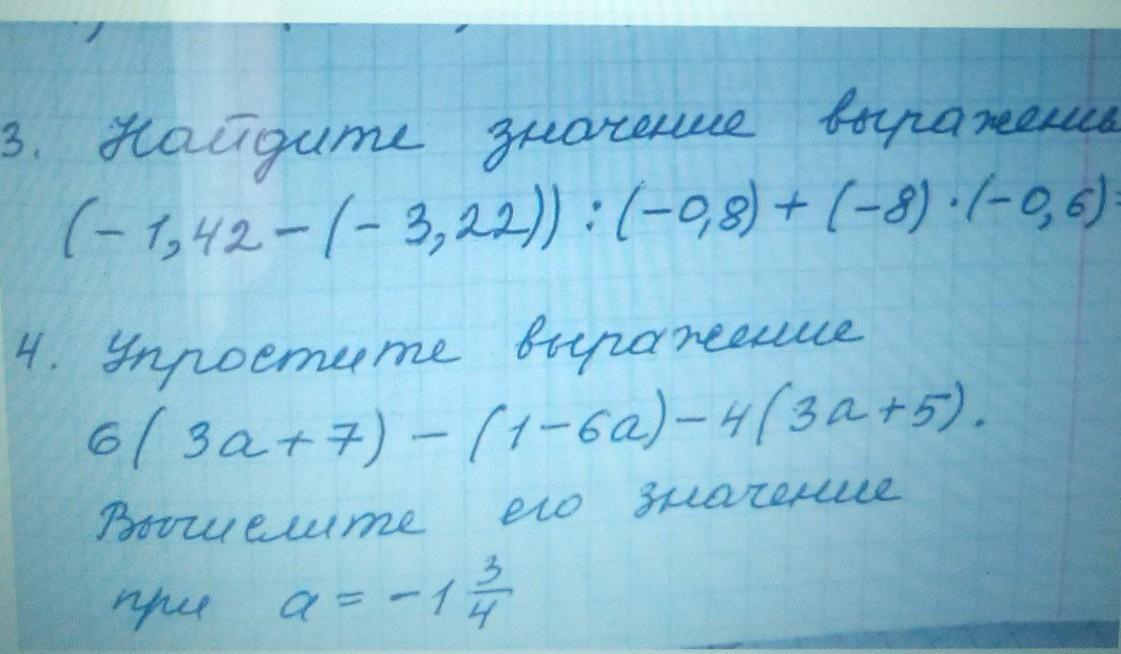 3. Найдите значение выражения
(-1,42-(-3,22)):(-0,8)+(-8)·(-0,6)=
4. Упростите выражение
6(3a+7)-(1-6a)-4(3a+5).
Вычислите его значение
при a=-1 3/4